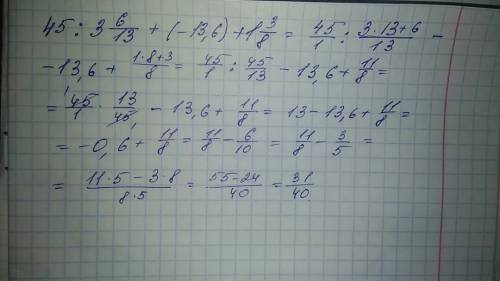 45 : 3 6/13 + (-13,6) + 1 3/8 = 45/1 : (3·13+6)/13 -
- 13,6 + (1·8+3)/8 = 45/1 : 45/13 - 13,6 + 11/8 =
= 45/1 · 13/45 - 13,6 + 11/8 = 13 - 13,6 + 11/8 =
= -0,6 + 11/8 = 11/8 - 6/10 = 11/8 - 3/5 =
= (11·5 - 3·8)/(8·5) = (55-24)/40 = 31/40